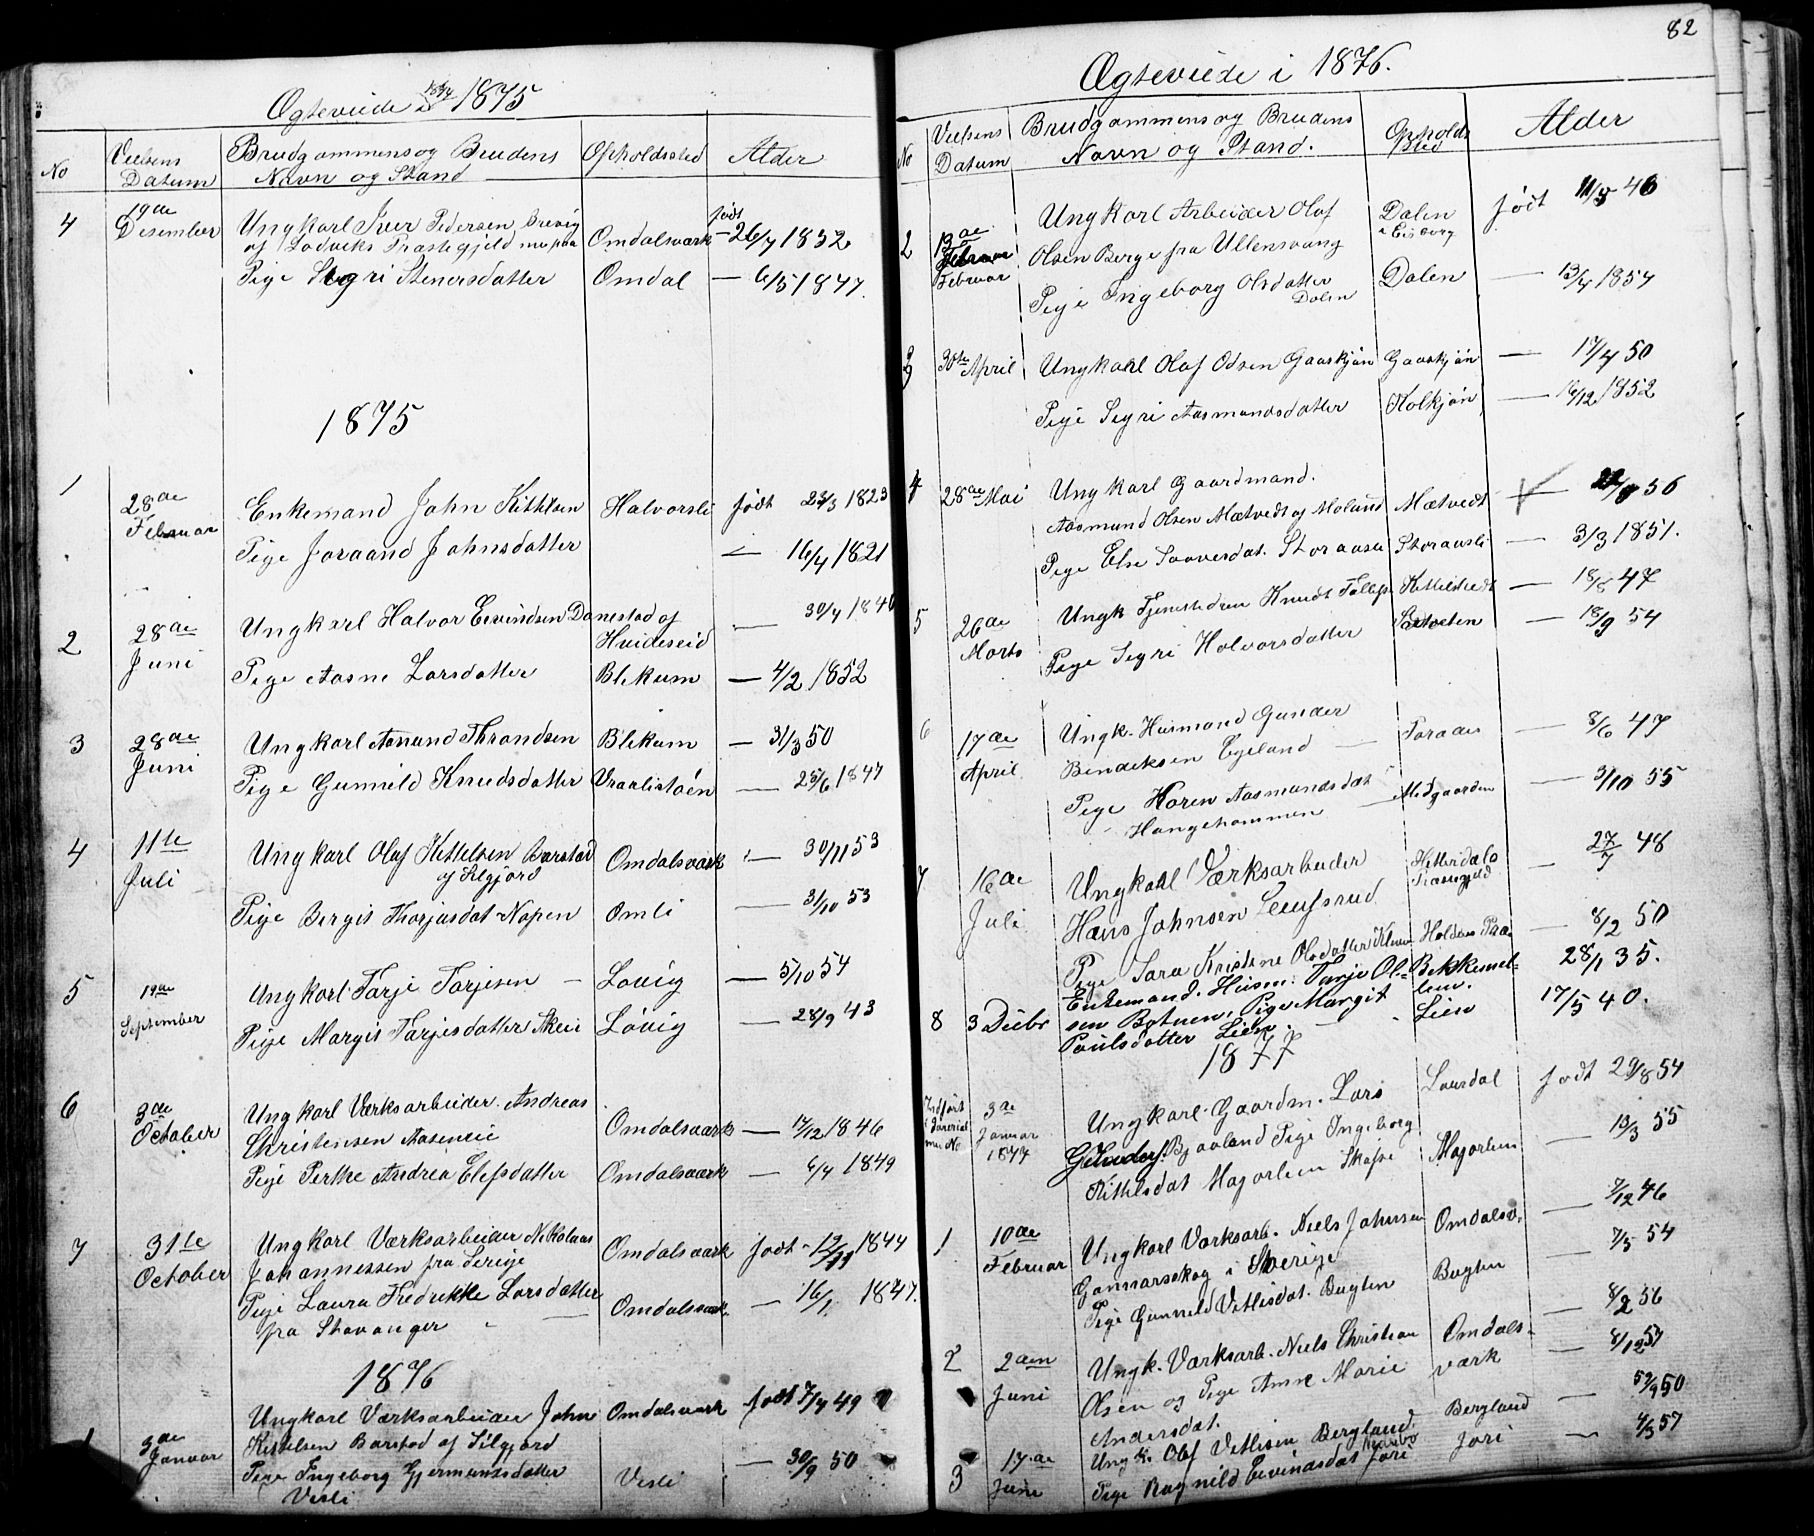 Ægteviede i 1874 1875
No
Vielsens
Datum
Brudgommens og Brudens
Navn og Stand
Opholdssted
Alder
4
19de
Desember
Ungkarl Iver Pedersen Brevig
af Lodviks Præstegjeld
Omdalsværk
født
26/7 1852
Pige Sigri Stenersdatter
Omdal
— 6/5 1847.
1875
1
28de
Februar
Enkemand John Kittelsen
Halvorsli
født 23/3 1823
Pige Joraand Johnsdatter
— 16/4 1821
2
28de
Juni
Ungkarl Halvor Eivindsen Danestad af
Hvideseid
— 30/4 1840
Pige Aasne Larsdatter
Blikum
— 4/2 1852
3
28de
Juni
Ungkarl Amund Throndsen
Blikum
— 31/3 50
Pige Gunnild Knudsdatter
Vraalistøen
— 25/6 1847
4
11te
Juli
Ungkarl Olaf Kittelsen Barstad
af Silgjord
Omdalsværk
— 30/11 53
Pige Bergit Thorjusdat. Napen
Omli
— 31/10 53
5
19de
September
Ungkarl Tarje Tarjesen
Løvig
— 5/10 54
Pige Margit Tarjesdatter Skeie
Løvig
— 28/9 43
6
3de
October
Ungkarl Værksarbeider Andreas
Christensen Aaseneie
Omdalsværk
— 17/12 1846
Pige Perthe Andrea Elefsdatter
Omdalsværk
— 6/4 1849
7
31te
October
Ungkarl Værksarbeider Nikolaus
Johannessen fra Sverige
Omdalsværk
født 12/11 1844
Pige Laura Fredrikke Larsdatter
fra Stavanger
Omdalsværk
— 16/1 1847.
1876
1
3de
Januar
Ungkarl Værksarbeider John
Kittelsen Barstad af Silgjord
Omdalsværk
født 7/4 49
Pige Ingeborg Gjermundsdatter
Vesli
Vesli
— 30/9 50
82
Ægteviede i 1876.
No
Vielsens
Datum
Brudgommens og Brudens
Navn og Stand.
Opholds
Sted
Alder
2
13de
Februar
Ungkarl Arbeider Olaf
Olsen Berge fra Ullensvang
Dalen
i Eisborg
født 11/3 46
Pige Ingeborg Olsdatter
Dalen
Dalen
— 13/4 1854
3
30te April
Ungkarl Olaf Olsen Gaaskjøn
Gaaskjøn
— 17/4 50
Pige Sigri Aasmundsdatter
Kolkjøn
— 16/12 1852
4
28de Mai
Ungkarl Gaardmand.
Aasmund Olsen Mætvedt af Moland
Mætvedt
— 22/8 56
Pige Else Saavesdat. Storaasli
Storaasli
— 3/3 1851.
5
26de
Marts
Ungk. Tjenestedreng Knudt Tallefs.
Kittelstvedt
— 18/8 47
Pige Sigri Halvorsdatter
— 18/9 54
6
17de
April
Ungk. Husmand Gunder
Bendiksen Egeland
Foraas
— 8/6 47
Pige Karen Aasmundsdat.
Haugehommen
Midgaarden
— 31/10 55
7
16de
Juli
Ungkarl Værksarbeider
Hans Johnsen Leufsrud
Hitterdals
Præstegjeld
— 27/7 48
Pige Sara Kristine Olsdatter
Holdens Præ.
— 8/2 50
8
3 Decbr
Enkemand. Husm. Tarje Ol-
sen Botnen. Pige Margit
Paulsdatter Lien.
Bekkemel-
len.
28/1 35.
Lien
17/5 40.
1877
Indført
3de
Januar
1877
Ungkarl Gaardm. Lars
Gunders. Bjaaland Pige Ingeborg
Kittelsdat Hagorlien Skafse
Laurdal
født 29/8 54
Hagorlien
— 13/3 55
1
10de
Februar
Ungkarl Værksarb. Niels Johnsen
Gonnarsskog i Sverige
Omdalsv.
— 7/12 46
Pige Gunnild Vetlisdat. Bugten
Bugten
7/5 54
2
2den
Juni
Ungk. Værksarb. Niels Christian
Olsen og Pige Anne Marie
Andersdat.
Omdals-
værk
— 8/2 56
— 8/12 57
3
17de
Juni
Ungk. Olaf Vetlesen Bergland
Bergland
— 50
Pige Ragnild Eivindsdat Jori
Jori
— 4/3 57